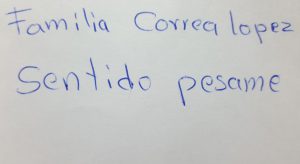 Familia Correa lopez
Sentido pesame